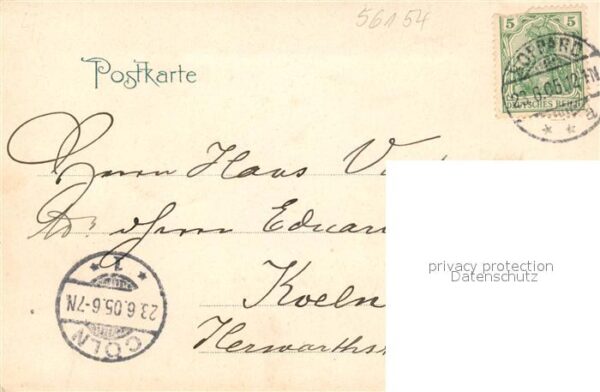 56154
5 5
DEUTSCHES REICH
BOPPARD
23.6.05.12-1N
Postkarte
Herrn Hans V
Adr. Herrn Eduar
Koeln
Herwarths
CÖLN
23.6.05.6-7N.
1
privacy protection
Datenschutz